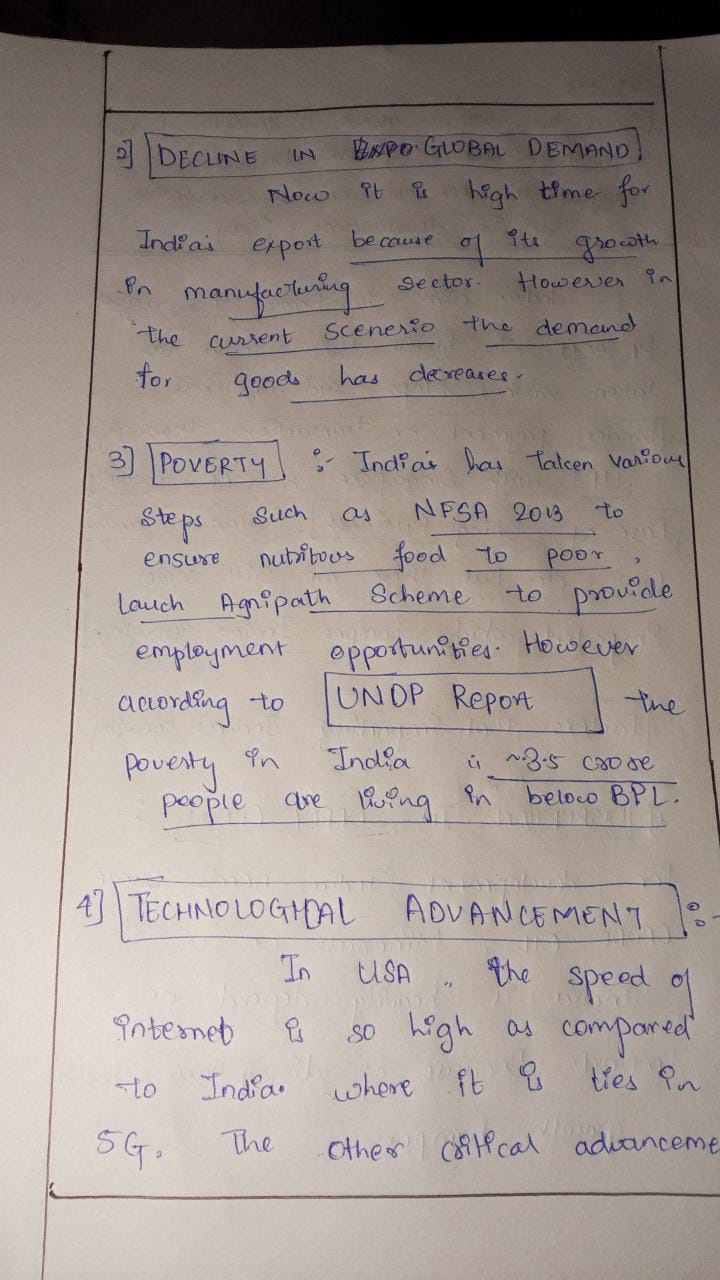 2] DECLINE IN GLOBAL DEMAND
Now it is high time for
India's export because of its growth
in manufacturing sector. However in
the current scenerio the demand
for goods has decreases.
3] POVERTY :- India's has taken various
steps such as NFSA 2013 to
ensure nutritous food to poor,
Lauch Agnipath Scheme to provide
employment opportunities. However
according to UNDP Report the
poverty in India is ~3.5 crore
people are living in below BPL.
4] TECHNOLOGICAL ADVANCEMENT :-
In USA, the speed of
internet is so high as compared
to India. where it is ties in
5G. The other critical advanceme